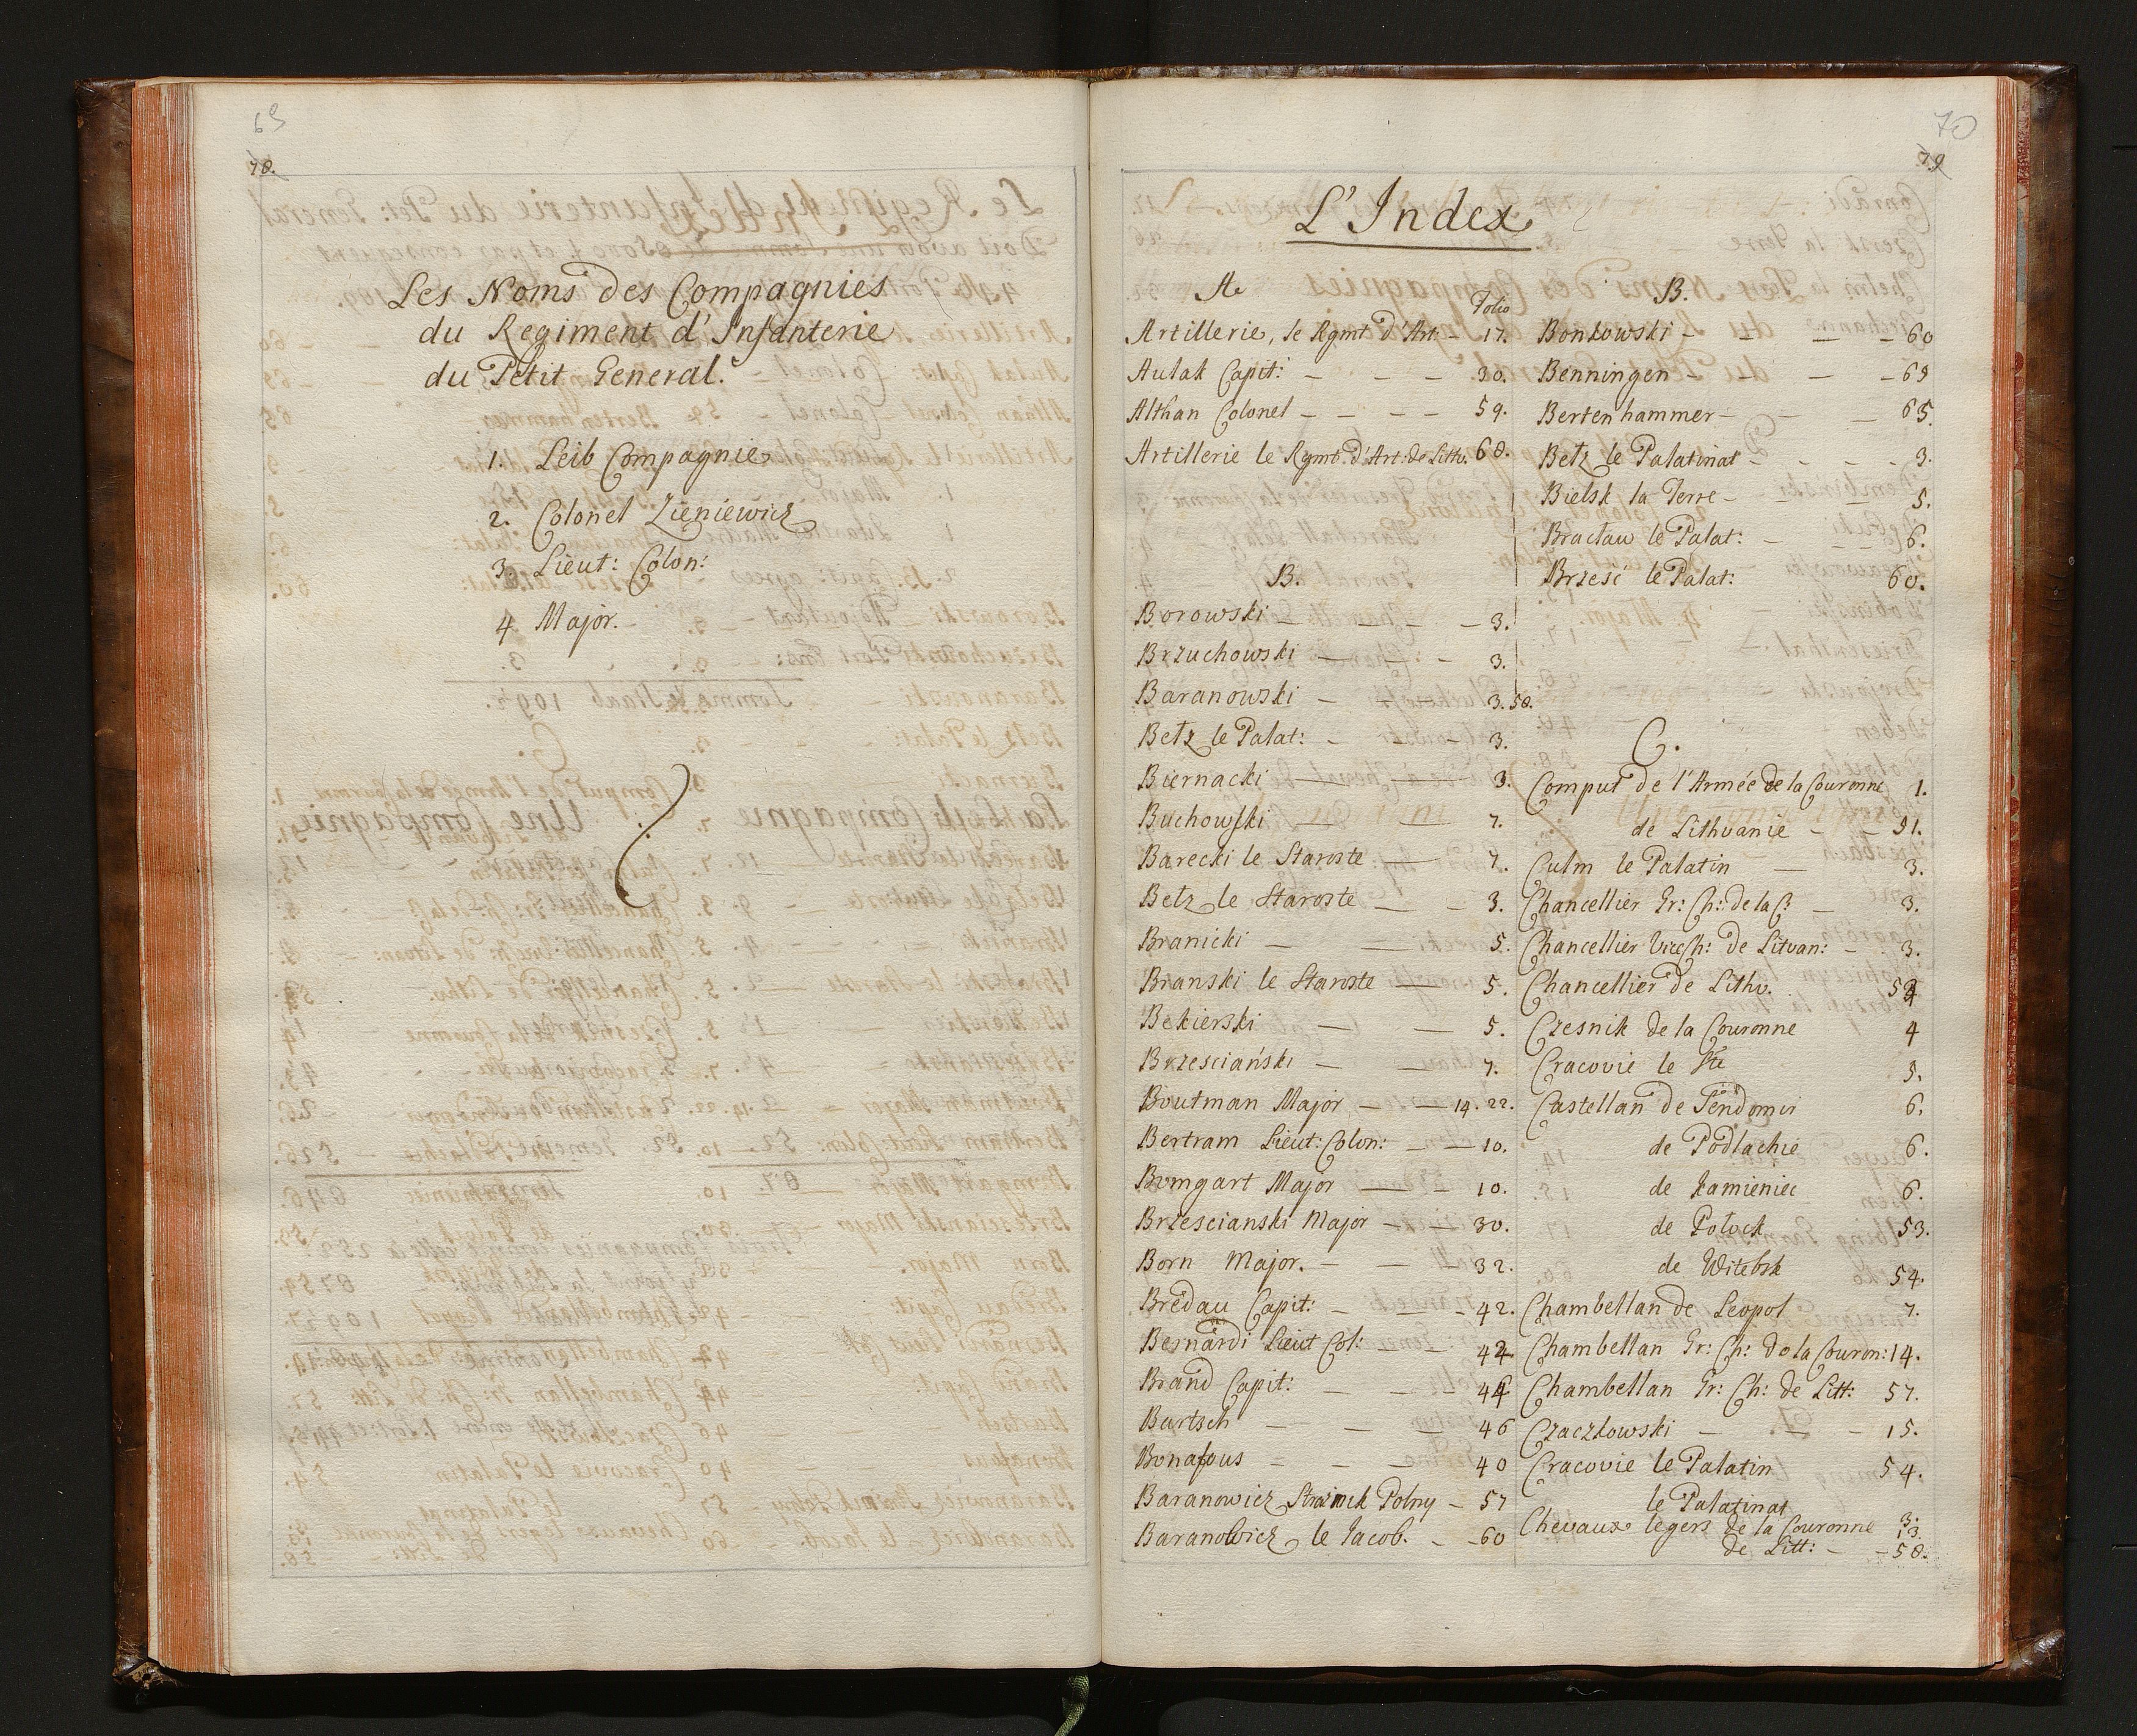 69
78.
Les Noms des Compagnies
du Regiment d'Infanterie
du Petit General.
1. Leib Compagnie
2. Colonel Zieniewicz
3. Lieut: Colon:
4 Major.
70
79
L'Index
A.
Folio
Artillerie, le Rgmt d'Art. - 17.
Aulak Capit: - - - 30.
Althan Colonel - - - - 59.
Artillerie le Rgmt. d'Art: de Lith. 68.
B.
Borowski - - - - 3.
Brzuchowski - - - 3.
Baranowski - - 3. 58.
Betz le Palat: - - - 3.
Biernacki - - 3.
Buchowski - - 7.
Barecki le Staroste - 7.
Betz le Staroste - - 3.
Branicki - - 5.
Branski le Staroste - 5.
Bekierski - - 5.
Brzesciański - - 7.
Boutman Major - - 14. 22.
Bertram Lieut: Colon: - - 10.
Bomgart Major - - 10.
Brzescianski Major - - 30.
Born Major. - - - 32.
Bredau Capit: - - - 42.
Bernardi Lieut Col: - - 42
Brand Capit: - - - 44
Bartsch - - - 46
Bonafous - - - 40
Baranowicz Straznick Polny - 57
Baranowicz le Jacob. - - 60
B.
Bonkowski - - - - 60
Benningen - - - - 69
Bertenhammer - - - 65.
Betz le Palatinat - - - - 3.
Bielsk la Terre - - - 5.
Bracław le Palat: - - - 6.
Brzesc le Palat: 60.
C.
Comput de l'Armée de la Couronne 1.
de Lithuanie - - 51.
Culm le Palatin - 3.
Chancellier Gr: Ch: de la C: - 3.
Chancellier Vice Ch: de Litvan: - 3.
Chancellier de Lithv. 52
Czesnik de la Couronne 4
Cracovie le Ste 5.
Castellan de Sendomir 6.
de Podlachie 6.
de Kamieniec 6.
de Połock 53.
de Witebsk 54.
Chambellan de Leopol 7.
Chambellan Gr: Ch: de la Couron: 14.
Chambellan Gr: Ch: de Litt: 57.
Czaczkowski - - - 15.
Cracovie le Palatin 54.
le Palatinat 3.
Chevaux legers de la Couronne 13.
de Litt: - - 58.